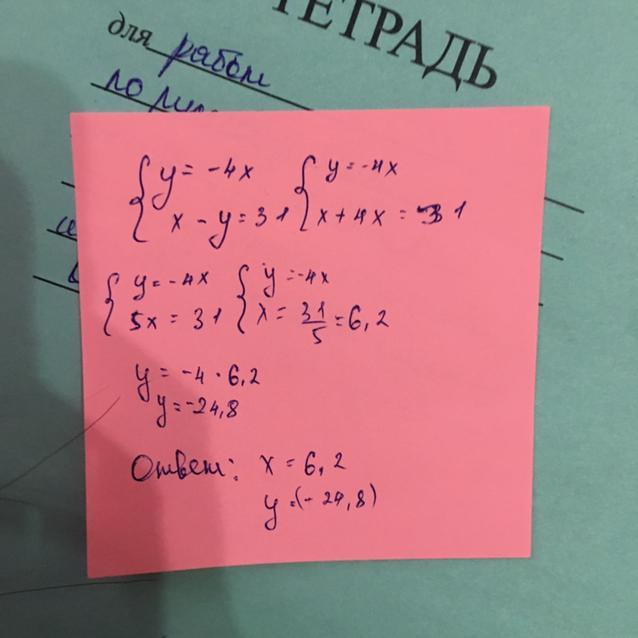 ТЕТРАДЬ
для работ
по
{ y = -4x { y = -4x
x - y = 31 x + 4x = 31
{ y = -4x { y = -4x
5x = 31 x = 31/5 = 6,2
y = -4 · 6,2
y = -24,8
Ответ: x = 6,2
y = (-24,8)